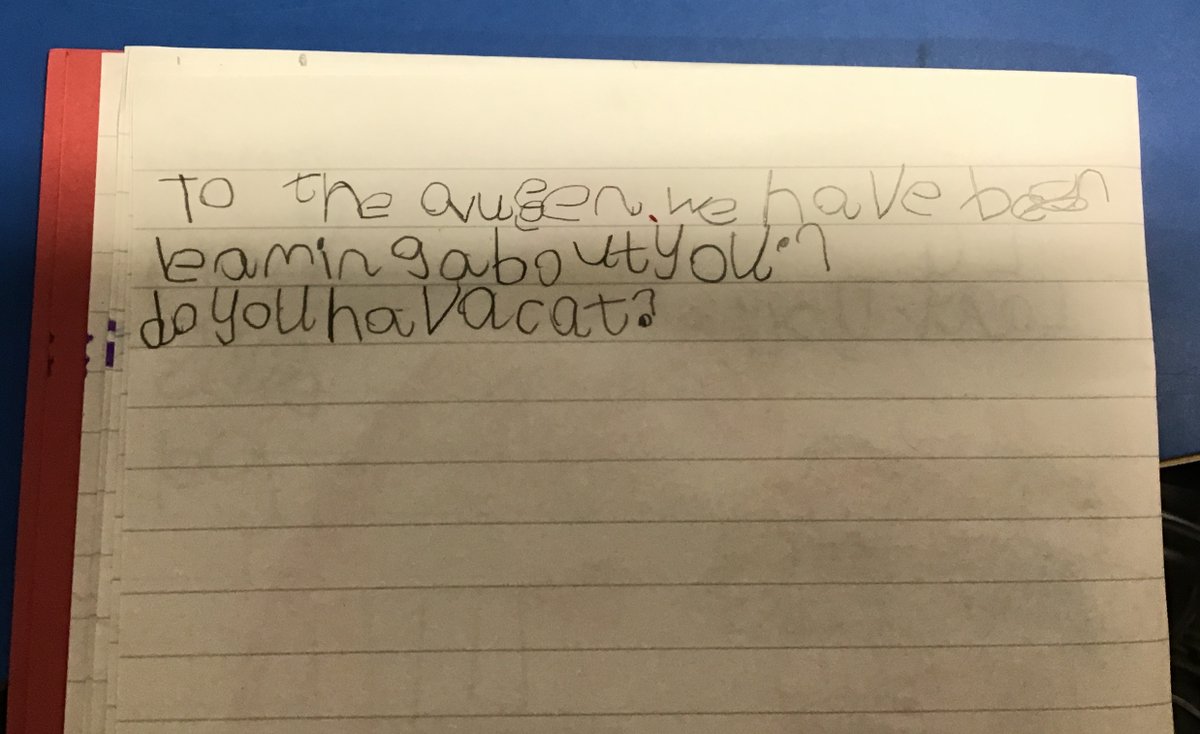 To the queen. we have been
learning about you.
do you hav a cat?